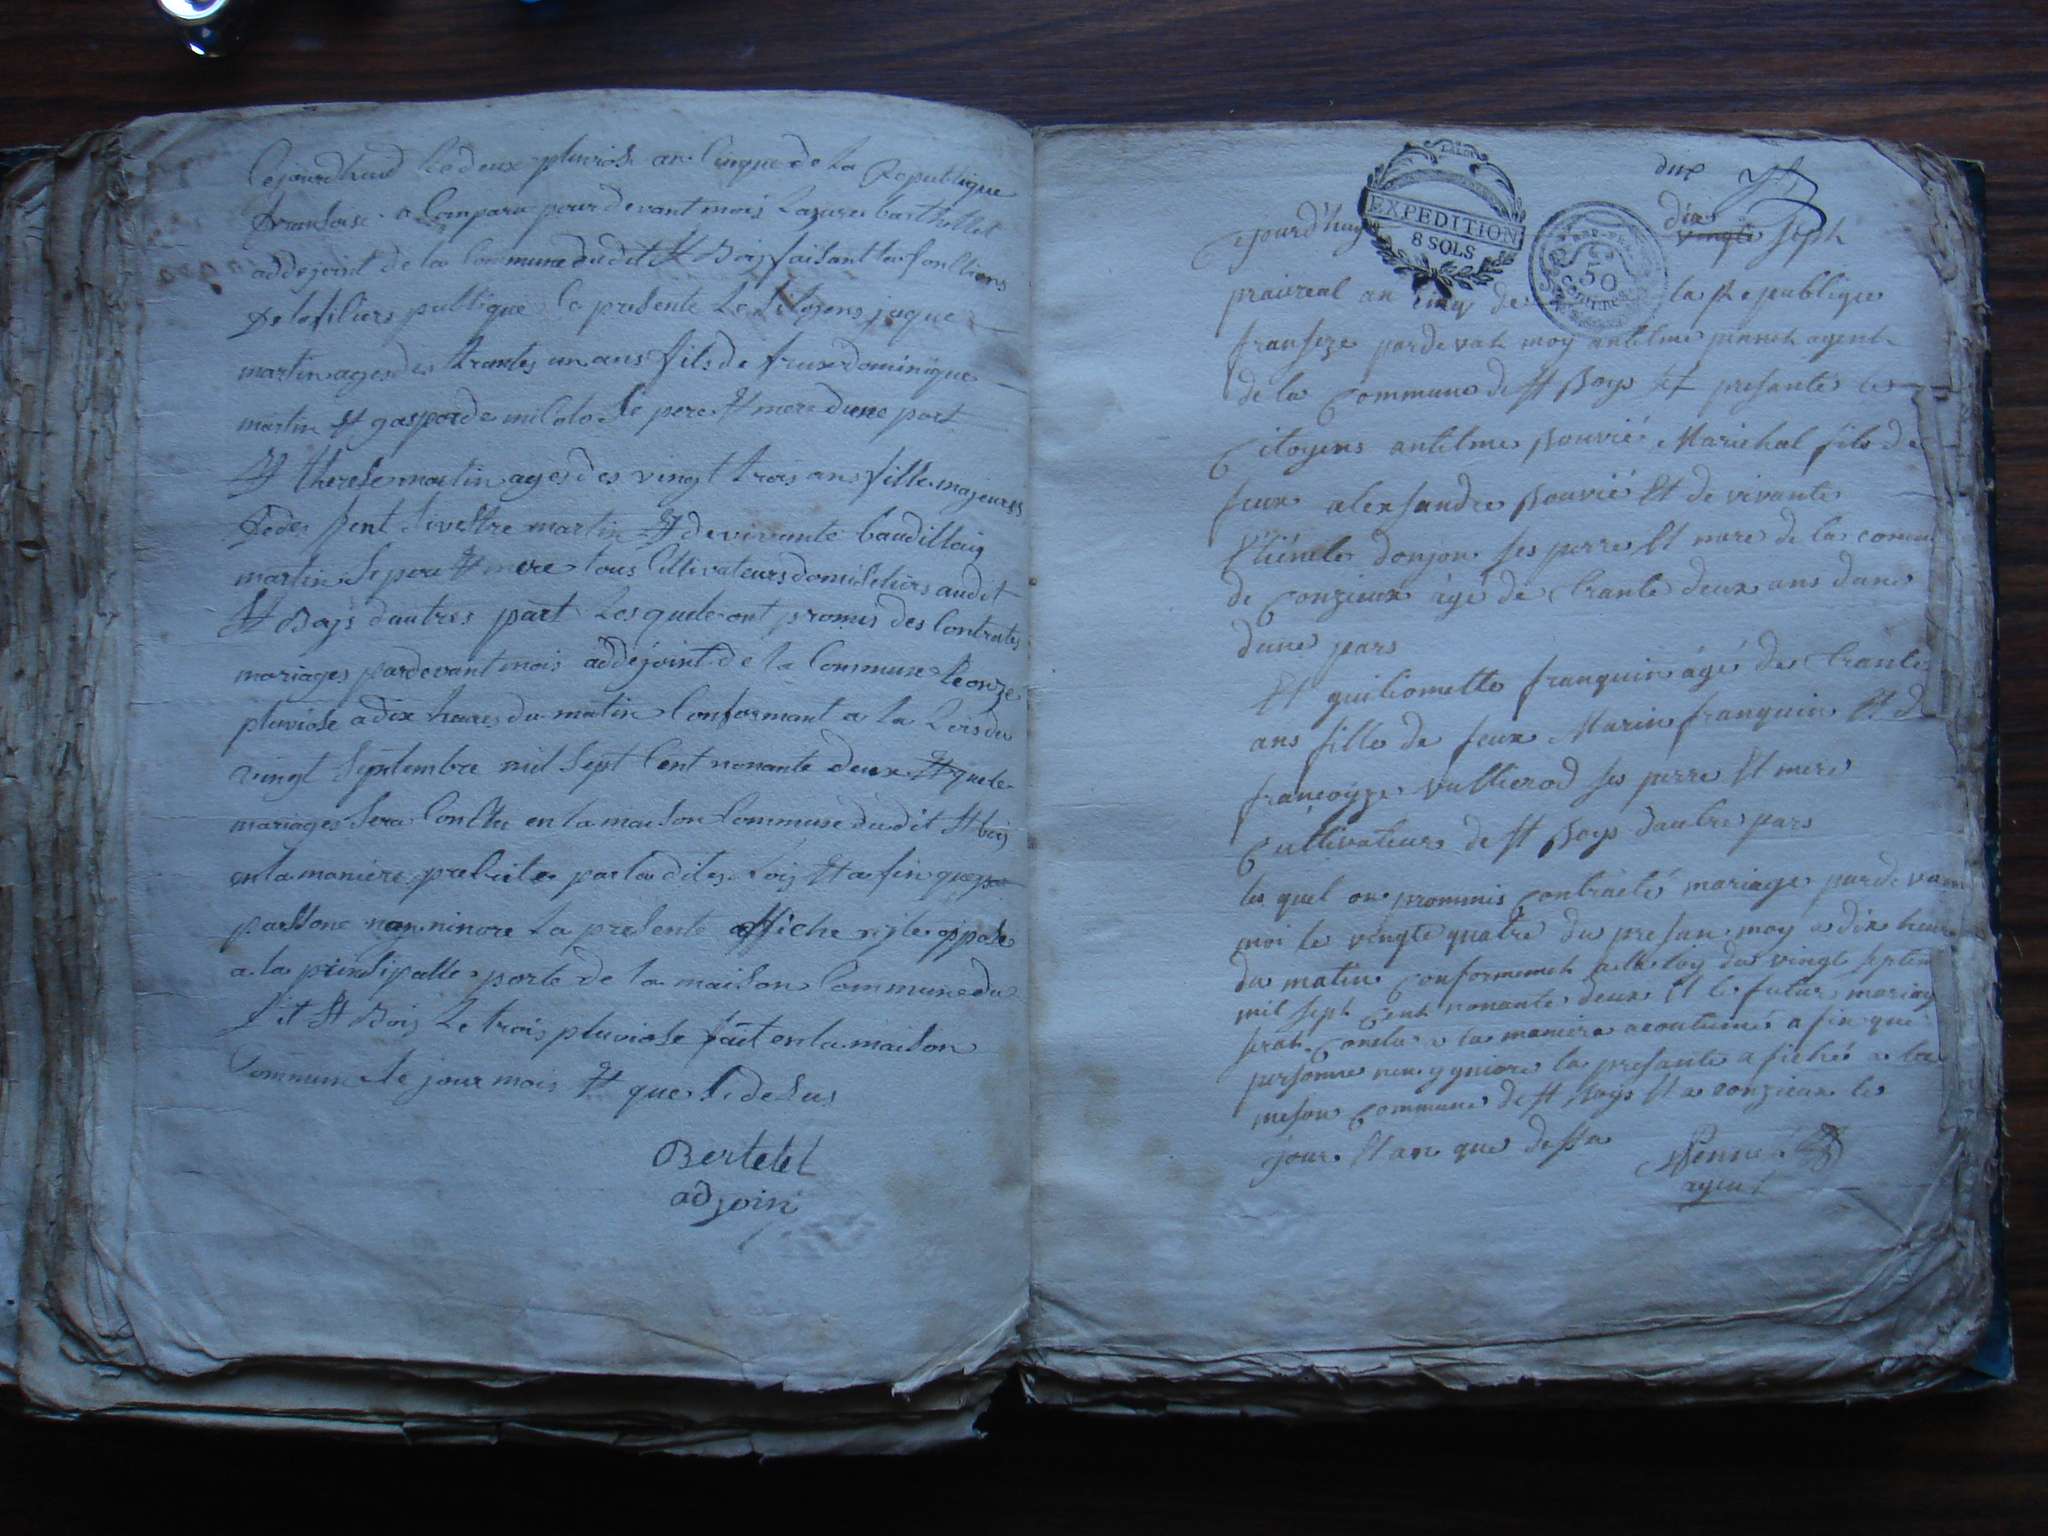 Cejourdhuid le deux pluviose an Cinque de la Republique
francoise a Comparu pourdevant mois Lazare barthellet
addejoint de la Commune dudit St Bois faisant les fonctions
publique la presente Le Citoyens jaque
martin ages des trantes un ans fils de feux dominique
martin Et gasparde milolo Se pere Et mere dune part
Et therese martin ages des vingt trois ans fille majeures
Silvestre martin Et de vivante baudillois
martin Se pere Et mere tous Cultivateurs domiciliers audit
St Boys dautres part Lesquele ont promis des Contrates
mariages pardevant mois addejoint de la Commune le onze
pluviose a dix heures du matin Conformant a la Lois du
vingt Septembre mil Sept Cent nonante deux Et que le
mariages Sera Conclu en la maison Commune dudit St bois
en la maniere prescites par la dites Lois Et a fin que
parssone nen ninore la presente affiche opposé
a la prinsipalle porte de la maison Commune du
dit St Bois Le trois pluviose fait en la maison
Commune le jour mois Et que Sidesus
Bertelet
adjoin
due
EXPEDITION
8 SOLS
50
CENTIMES
dix
jourd'huy vingte seph
praireal an cinq de la Republique
franseze pardevah moy antelme pennet agent
de la Commune de St Boys Et presante le
Citoyens antelme Bouvié Marichal fils de
feux alexsandre Bouvié Et de vivante
donjon ses perre Et mere de la comm
de Conzieux agé de trante deux ans dune
dune pars
Et guiliomette franquin agé de trante
ans fille de feux Marin franquin Et d
francoyze vullierod ses perre Et mere
Cultivateur de St Boys dautre pars
les quel on prommis Contracté mariage pardevan
moi le vingte quatre du presan moy a dix heure
du matin Conformemeh a la loy du vingt septem
mil seph Cenh nonante deux Et le futur mariag
serah Conclu a la maniere acoutumé a fin que
personne nen ygniore la presante a fiché a la
meson Commune de St Boys Et a conzieux le
jour Et an que dessu
Penne
agent